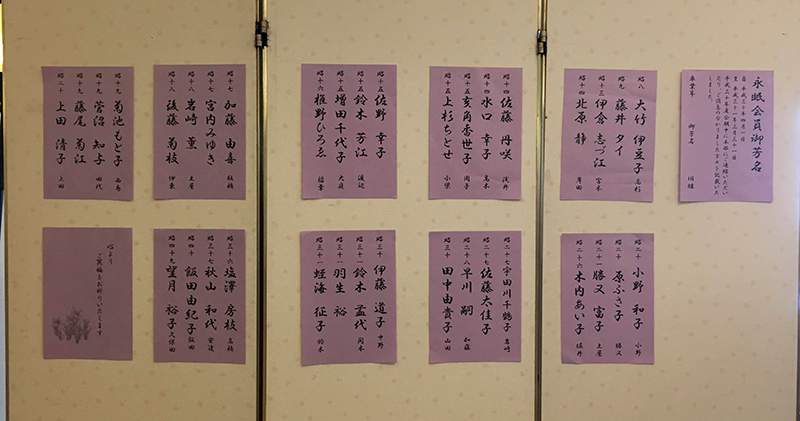 永眠会員御芳名
自 平成三十年四月一日
至 平成三十一年三月三十一日
平成三十年度会期中に本部にご連絡いただい
たり、ご消息の分かりました方々を記載いた
しました。
卒業年 御芳名 旧姓
昭八 大竹伊豆子 高杉
昭九 藤井タイ
昭十三 伊倉志づ江 宮本
昭十四 北原静 厚田
昭十四 佐藤丹咲 浅井
昭十四 水口幸子 高木
昭十五 亥角香世子 岡子
昭十五 上杉ちとせ 小栗
昭十五 佐野幸子
昭十五 鈴木芳江 渡辺
昭十五 増田千代子 大庭
昭十六 椎野ひろゑ 稲葉
昭十七 加藤由喜 板橋
昭十七 宮内みゆき
昭十八 岩崎薫 土屋
昭十八 後藤菊枝 伊東
昭十九 菊池もと子 西島
昭十九 菅沼知与 田代
昭十九 藤尾菊江
昭二十 上田清子 上田
昭二十 小野和子 小野
昭二十 原ふさ子
昭二十一 勝又富子 土屋
昭二十六 木内あい子 堀井
昭二十七 宇田川千鶴子 岩崎
昭二十七 佐藤太佳子
昭二十八 早川嗣 加藤
昭三十 田中由貴子 山田
昭三十 伊藤道子 中野
昭三十一 鈴木益代 岡本
昭三十一 羽生裕
昭三十一 蛭海征子 鈴木
昭三十六 塩澤房枝 高橋
昭三十七 秋山和代 安達
昭四十 飯田由紀子 飯田
昭四十九 望月裕子 久保田
心より
ご冥福をお祈りいたします